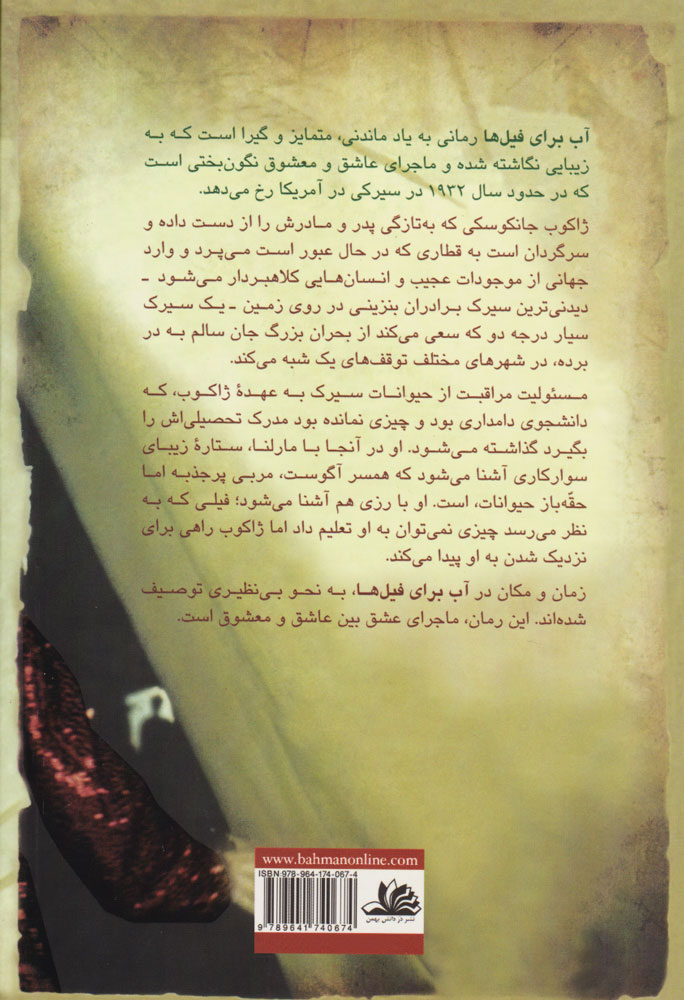 آب برای فیل‌ها رمانی به یاد ماندنی، متمایز و گیرا است که به
زیبایی نگاشته شده و ماجرای عاشق و معشوق نگون‌بختی است
که در حدود سال ۱۹۳۲ در سیرکی در آمریکا رخ می‌دهد.
ژاکوب جانکوسکی که به‌تازگی پدر و مادرش را از دست داده و
سرگردان است به قطاری که در حال عبور است می‌پرد و وارد
جهانی از موجودات عجیب و انسان‌هایی کلاهبردار می‌شود ـ
دیدنی‌ترین سیرک برادران بنزینی در روی زمین ـ یک سیرک
سیار درجه دو که سعی می‌کند از بحران بزرگ جان سالم به در
برده، در شهرهای مختلف توقف‌های یک شبه می‌کند.
مسئولیت مراقبت از حیوانات سیرک به عهدهٔ ژاکوب، که
دانشجوی دامداری بود و چیزی نمانده بود مدرک تحصیلی‌اش را
بگیرد گذاشته می‌شود. او در آنجا با مارلنا، ستارهٔ زیبای
سوارکاری آشنا می‌شود که همسر آگوست، مربی پرجذبه اما
حقّه‌باز حیوانات، است. او با رزی هم آشنا می‌شود؛ فیلی که به
نظر می‌رسد چیزی نمی‌توان به او تعلیم داد اما ژاکوب راهی برای
نزدیک شدن به او پیدا می‌کند.
زمان و مکان در آب برای فیل‌ها، به نحو بی‌نظیری توصیف
شده‌اند. این رمان، ماجرای عشق بین عاشق و معشوق است.
www.bahmanonline.com
ISBN:978-964-174-067-4
9 789641 740674
نشر در دانش بهمن